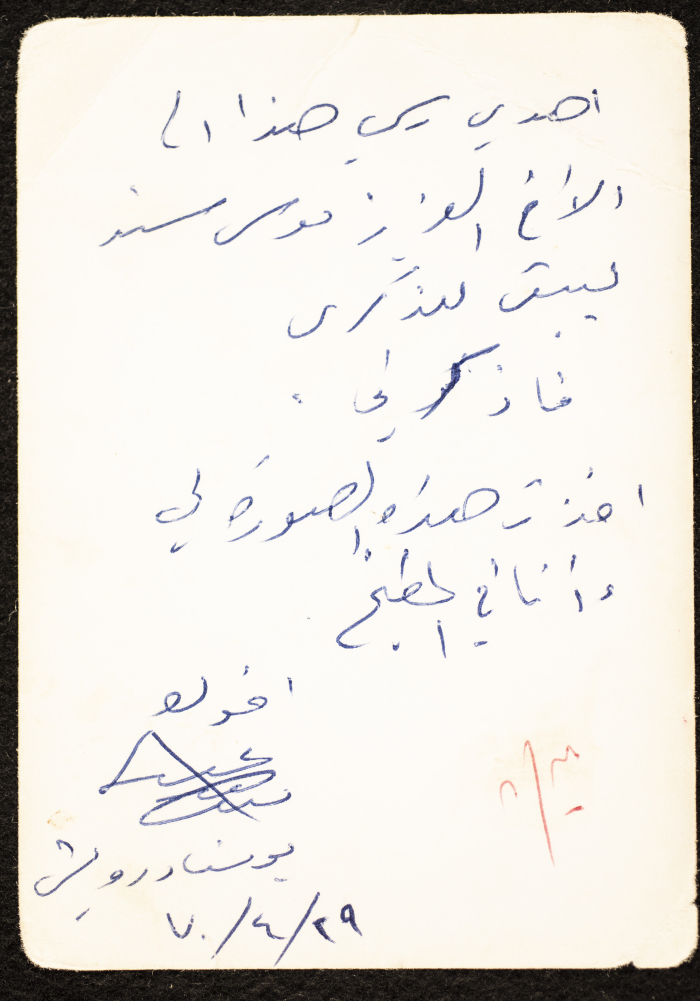 اهدي رسمي هذا الى
الاخ العزيز موسى سند
ليبقى للذكرى
فاذكرني .
اخذت هذه الصورة لي
وأنا في المطبخ
اخوك
يوسف درويش
٢٩/٤/٧٠